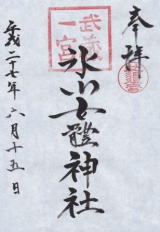 奉拝
武蔵
一宮
氷川女體神社
平成二十七年六月十五日